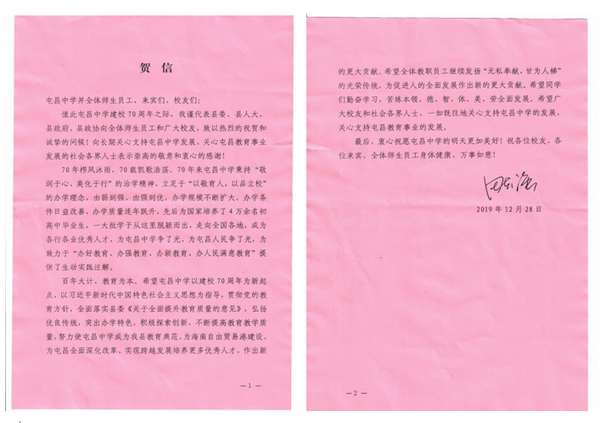 贺 信
屯昌中学并全体师生员工、来宾们、校友们：
值此屯昌中学建校70周年之际，我谨代表县委、县人大、
县政府、县政协向全体师生员工和广大校友，致以热烈的祝贺和
诚挚的问候！向长期关心支持屯昌中学发展、关心屯昌教育事业
发展的社会各界人士表示崇高的敬意和衷心的感谢！
70年栉风沐雨，70载凯歌浩荡。70年来屯昌中学秉持“敬
润于心、美化于行”的治学精神，立足于“以敬育人，以品立校”
的办学理念，由弱到强、由强到优，办学规模不断扩大，办学条
件日益改善，办学质量逐年跃升，先后为国家培养了4万余名初
高中毕业生，一大批学子从这里脱颖而出，走向全国各地，成为
各行各业优秀人才，为屯昌中学争了光，为屯昌人民争了光，为
致力于“办好教育、办强教育、办新教育、办人民满意教育”提
供了生动实践注解。
百年大计，教育为本。希望屯昌中学以建校70周年为新起
点，以习近平新时代中国特色社会主义思想为指导，贯彻党的教
育方针，全面落实县委《关于全面提升教育质量的意见》，弘扬
优良传统，突出办学特色，积极探索创新，不断提高教育教学质
量，努力使屯昌中学成为我县教育典范，为海南自由贸易港建设、
为屯昌全面深化改革、实现跨越发展培养更多优秀人才，作出新
—1—
的更大贡献。希望全体教职员工继续发扬“无私奉献，甘为人梯”
的光荣传统，为促进人的全面发展作出新的更大贡献。希望同学
们勤奋学习，苦练本领，德、智、体、美、劳全面发展。希望广
大校友和社会各界人士，一如既往地关心支持屯昌中学的发展，
关心支持屯昌教育事业的发展。
最后，衷心祝愿屯昌中学的明天更加美好！祝各位校友、各
位来宾、全体师生员工身体健康、万事如意！
2019年12月28日
—2—